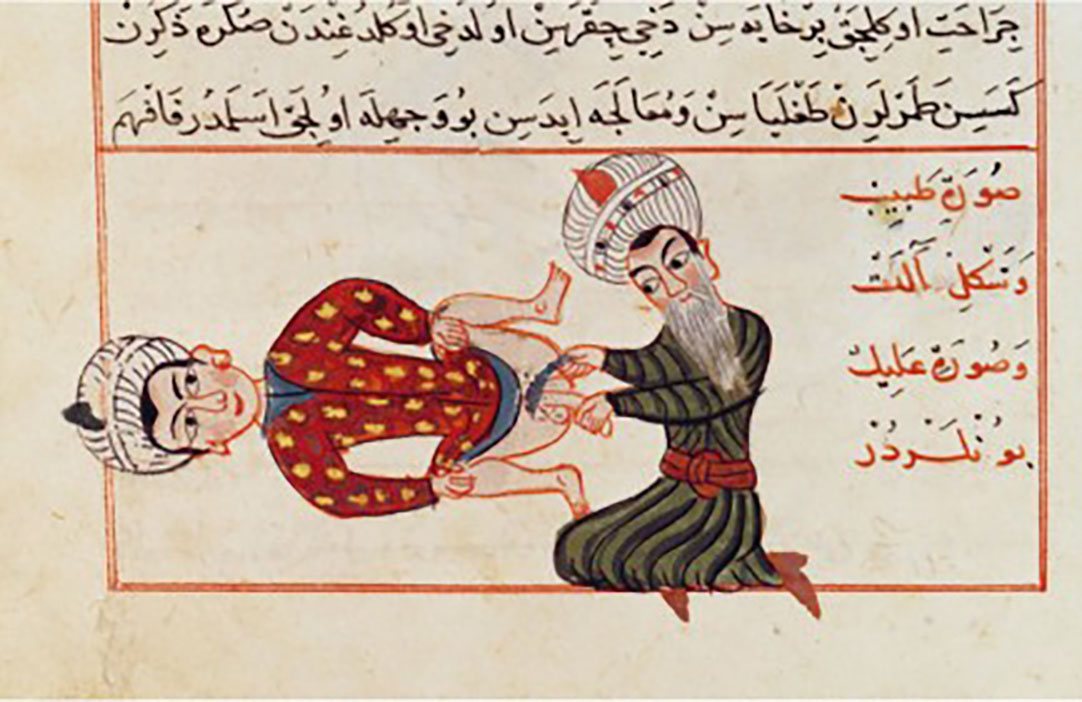 جراحت اوكلجق بر خايه سن دخي چقرسن اولدخي اوكلدغندن صكره ذكرن
كسسن طمرلرن طغلياسن ومعالجه ايدسن بو وجهله اولجق اسلمدر فافهم
صورة طبيب
وشكل آلت
وصورة عليك
بونلردر